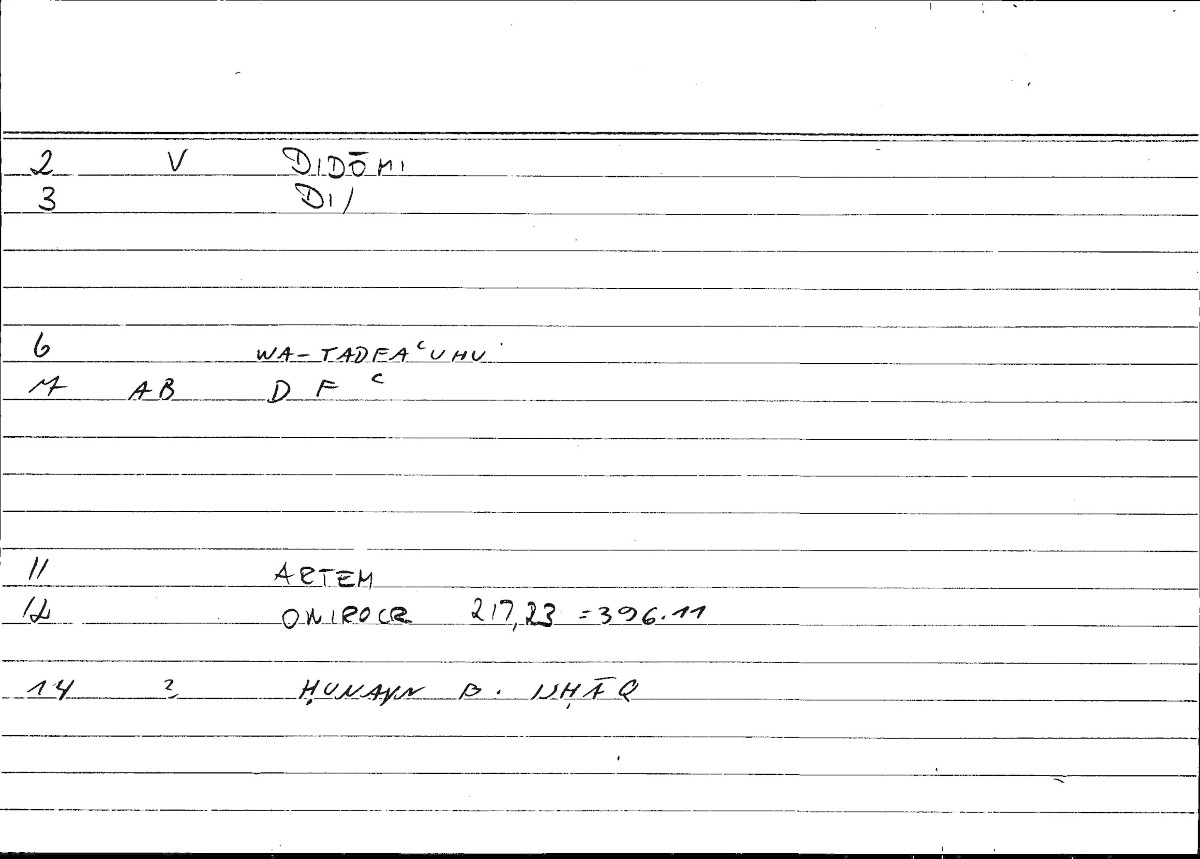 2 V DIDŌMI
3 DI/
6 WA-TADFAʿUHU
7 AB D F ʿ
11 ARTEM
12 ONIROCR 217,23 = 396.11
14 2 ḤUNAYN B. ISḤĀQ